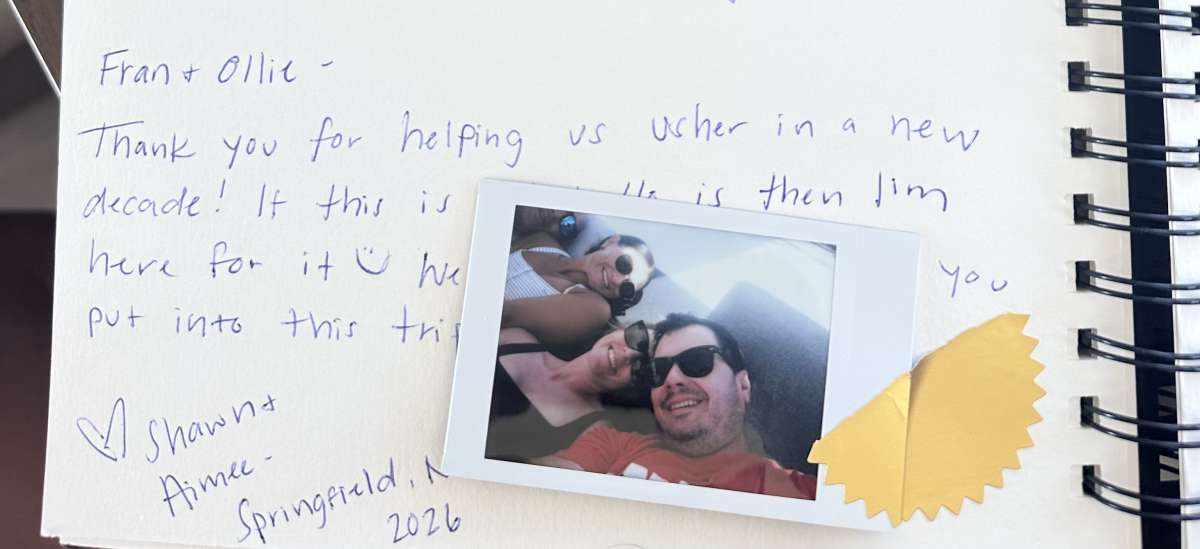 Fran + Ollie -
Thank you for helping us usher in a new
decade! If this is is then I'm
here for it We you
put into this
Shawn +
Aimee -
Springfield, N
2026